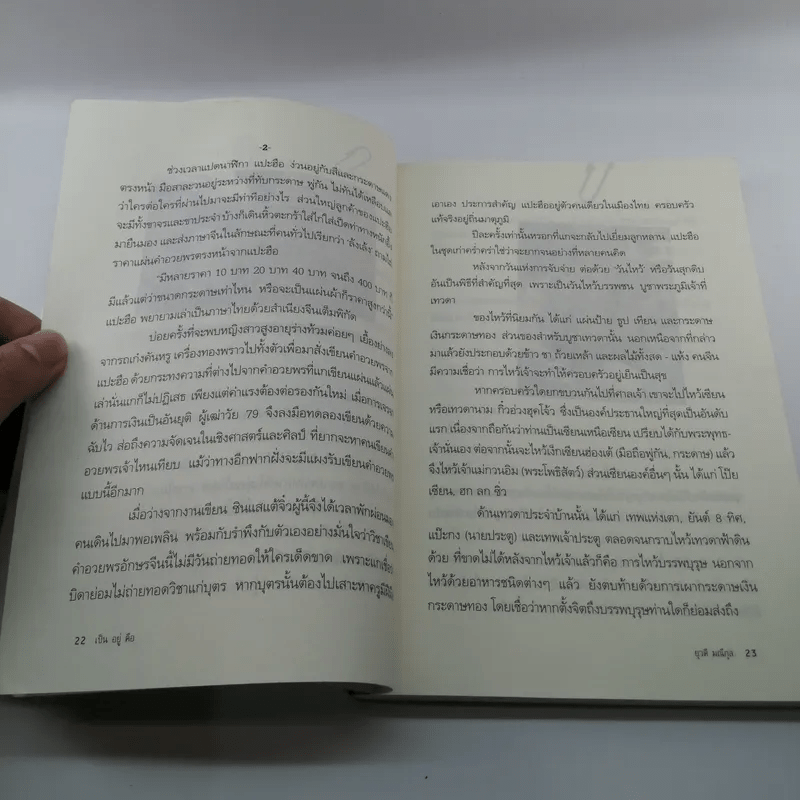 -2-
ช่วงเวลาแปดนาฬิกา แปะฮือ ง่วนอยู่กับสีและกระดาษแดง
ตรงหน้า มือสาละวนอยู่ระหว่างที่ทับกระดาษ พู่กัน ไม่ทันได้เหลือบมอง
ว่าใครต่อใครที่ผ่านไปมาจะมีท่าทีอย่างไร ส่วนใหญ่ลูกค้าของแปะฮือ
จะมีทั้งขาจรและขาประจำ บ้างก็เดินหิ้วตะกร้าใส่ไก่ใส่เป็ดท่าทาง
มายืนมอง และส่งภาษาจีนในลักษณะที่คนทั่วไปเรียกว่า 'ล้งเล้ง'
ราคาแผ่นคำอวยพรตรงหน้าจากแปะฮือ
"มีหลายราคา 10 บาท 20 บาท 40 บาท จนถึง 400 บาท ก็
มีแล้วแต่ว่าขนาดกระดาษเท่าไหน หรือจะเป็นแผ่นผ้าก็ราคาสูงกว่านี้"
แปะฮือ พยายามเล่าเป็นภาษาไทยด้วยสำเนียงจีนเต็มพิกัด
บ่อยครั้งที่จะพบหญิงสาวสูงอายุร่างท้วมค่อยๆ เยื้องย่างลง
จากรถเก๋งคันหรู เครื่องทองพราวไปทั้งตัวเพื่อมาสั่งเขียนคำอวยพรจาก
แปะฮือ ด้วยกระทงความที่ต่างไปจากคำอวยพรที่แกเขียนแผ่นแล้วแผ่น
เล่านั่นแกก็ไม่ปฏิเสธ เพียงแต่ค่าแรงต้องต่อรองกันใหม่ เมื่อการเจรจา
ด้านการเงินเป็นอันยุติ ผู้เฒ่าวัย 79 จึงลงมือทดลองเขียนด้วยความ
ฉับไว ส่อถึงความจัดเจนในเชิงศาสตร์และศิลป์ ที่ยากจะหาคนเขียนคำ
อวยพรเจ้าไหนเทียบ แม้ว่าทางอีกฟากฝั่งจะมีแผงรับเขียนคำอวยพร
แบบนี้อีกมาก
เมื่อว่างจากงานเขียน ซินแสแต้จิ๋วผู้นี้จึงได้เวลาพักผ่อนมอง
คนเดินไปมาพอเพลิน พร้อมกับรำพึงกับตัวเองอย่างมั่นใจว่าวิชาเขียน
คำอวยพรอักษรจีนนี้ไม่มีวันถ่ายทอดให้ใครเด็ดขาด เพราะแกเชื่อว่า
บิดาย่อมไม่ถ่ายทอดวิชาแก่บุตร หากบุตรนั้นต้องไปเสาะหาครูมีฝีมือ
22 เป็น อยู่ คือ
เอาเอง ประการสำคัญ แปะฮืออยู่ตัวคนเดียวในเมืองไทย ครอบครัว
แท้จริงอยู่ถิ่นมาตุภูมิ
ปีละครั้งเท่านั้นหรอกที่แกจะกลับไปเยี่ยมลูกหลาน แปะฮือ
ในชุดเก่าคร่ำคร่าใช่ว่าจะยากจนอย่างที่หลายคนคิด
หลังจากวันแห่งการจับจ่าย ต่อด้วย 'วันไหว้' หรือวันสุกดิบ
อันเป็นพิธีที่สำคัญที่สุด เพราะเป็นวันไหว้บรรพชน บูชาพระภูมิเจ้าที่
เทวดา
ของไหว้ที่นิยมกัน ได้แก่ แผ่นป้าย ธูป เทียน และกระดาษ
เงินกระดาษทอง ส่วนของสำหรับบูชาเทวดานั้น นอกเหนือจากที่กล่าว
มาแล้วยังประกอบด้วยข้าว ชา ถ้วยเหล้า และผลไม้ทั้งสด - แห้ง คนจีน
มีความเชื่อว่า การไหว้เจ้าจะทำให้ครอบครัวอยู่เย็นเป็นสุข
หากครอบครัวใดยกขบวนกันไปที่ศาลเจ้า เขาจะไปไหว้เซียน
หรือเทวดานาม กิ่วอ่วงฮุดโจ้ว ซึ่งเป็นองค์ประธานใหญ่ที่สุดเป็นอันดับ
แรก เนื่องจากถือกันว่าท่านเป็นเซียนเหนือเซียน เปรียบได้กับพระพุทธ-
เจ้านั่นเอง ต่อจากนั้นจะไหว้เง็กเซียนฮ่องเต้ (มือถือพู่กัน, กระดาษ) แล้ว
จึงไหว้เจ้าแม่กวนอิม (พระโพธิสัตว์) ส่วนเซียนองค์อื่นๆ นั้น ได้แก่ โป๊ย
เซียน, ฮก ลก ซิ่ว
ด้านเทวดาประจำบ้านนั้น ได้แก่ เทพแห่งเตา, ยันต์ 8 ทิศ,
แป๊ะกง (นายประตู) และเทพเจ้าประตู ตลอดจนกราบไหว้เทวดาฟ้าดิน
ด้วย ที่ขาดไม่ได้หลังจากไหว้เจ้าแล้วก็คือ การไหว้บรรพบุรุษ นอกจาก
ไหว้ด้วยอาหารชนิดต่างๆ แล้ว ยังตบท้ายด้วยการเผากระดาษเงิน
กระดาษทอง โดยเชื่อว่าหากตั้งจิตถึงบรรพบุรุษท่านใดก็ย่อมส่งถึง
ยุวดี มณีกุล 23